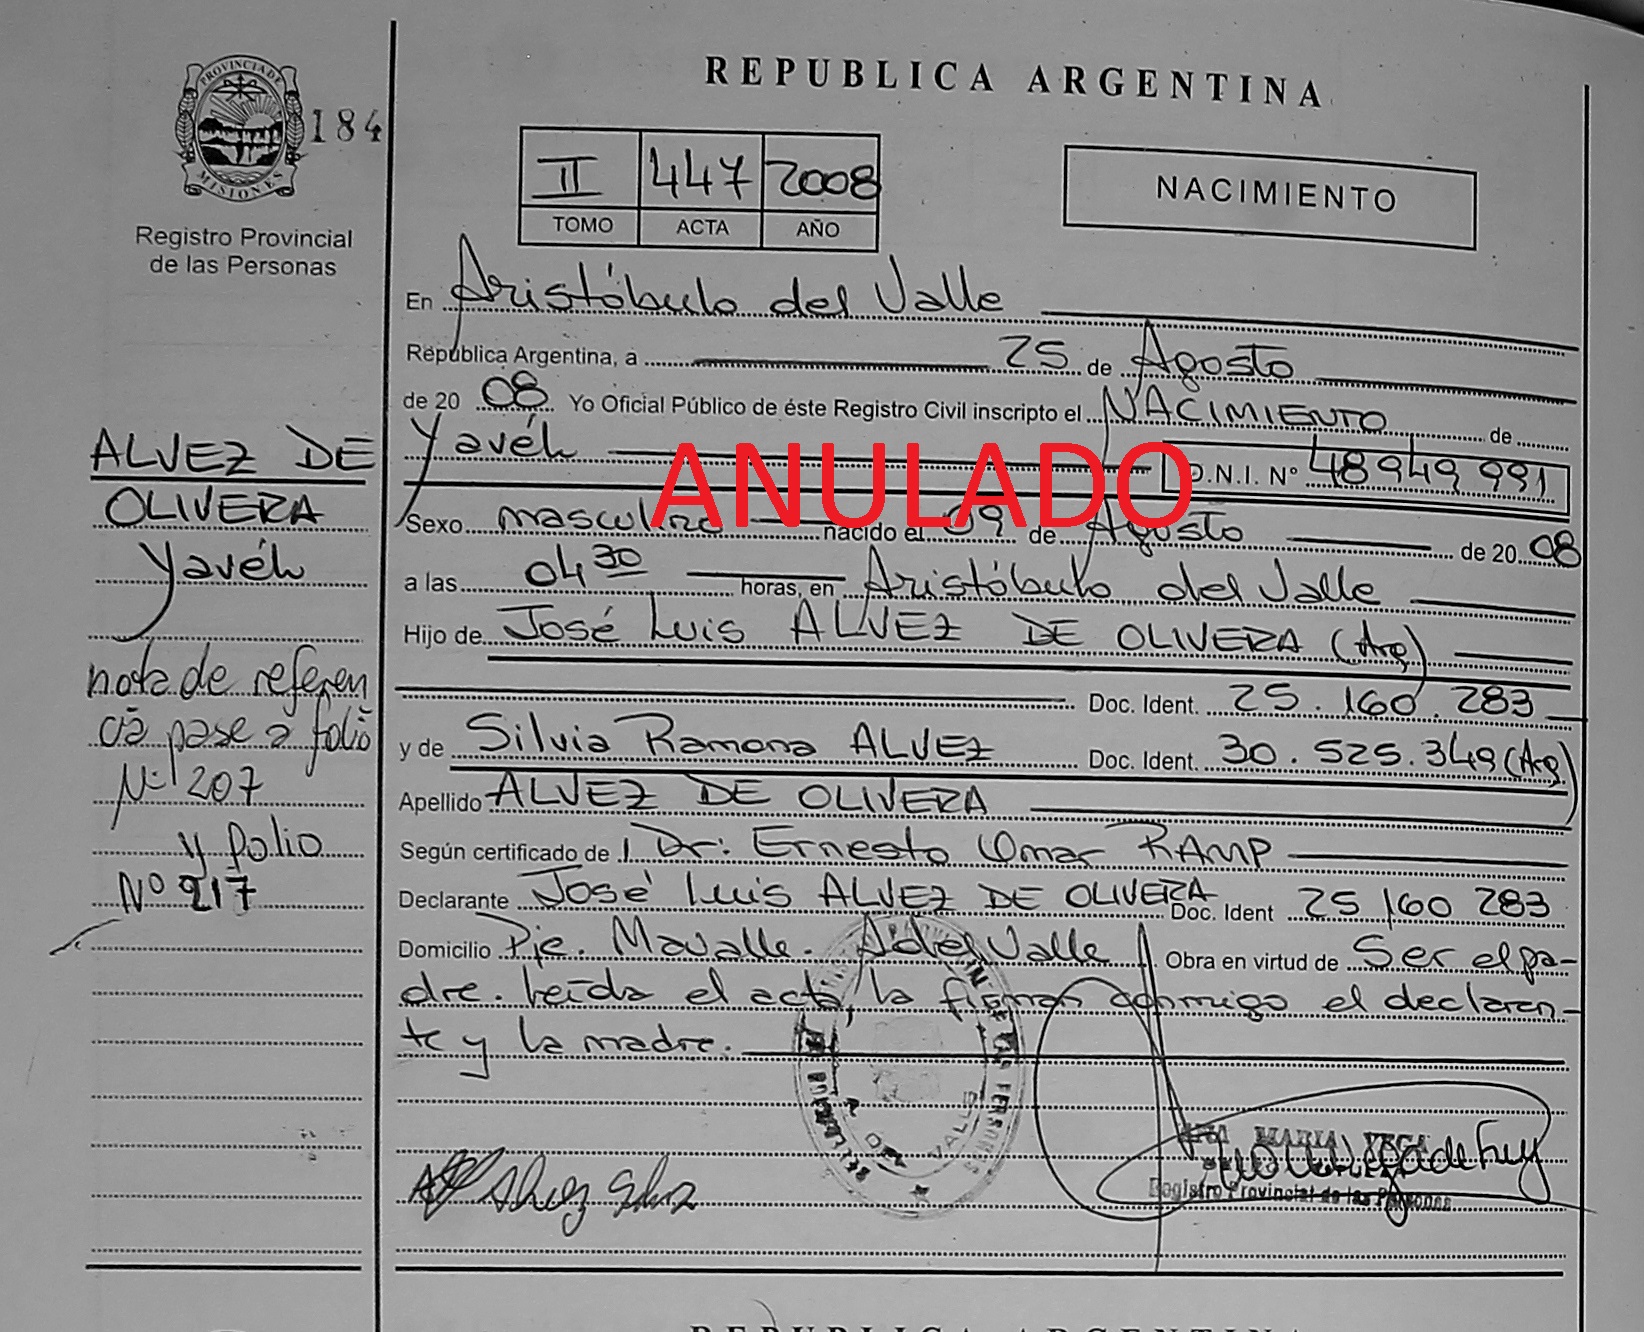 REPUBLICA ARGENTINA
PROVINCIA DE
MISIONES
184
Registro Provincial
de las Personas
II 447 2008
TOMO ACTA AÑO
NACIMIENTO
En Aristóbulo del Valle
República Argentina, a 25 de Agosto
de 20 08 Yo Oficial Público de éste Registro Civil inscripto el NACIMIENTO de
Yavéh D.N.I. Nº 48 949 991
ANULADO
Sexo masculino nacido el 09 de Agosto de 20 08
a las 04 30 horas, en Aristóbulo del Valle
Hijo de José Luis ALVEZ DE OLIVERA (Arg)
Doc. Ident. 25.160.283
y de Silvia Ramona ALVEZ Doc. Ident. 30.525.349 (Arg)
Apellido ALVEZ DE OLIVERA
Según certificado de Dr: Ernesto Omar RAMP
Declarante José Luis ALVEZ DE OLIVERA Doc. Ident 25 160 283
Domicilio Pje. Mavalle. A del Valle Obra en virtud de Ser el pa-
dre. Leída el acta, la firman conmigo el declaran-
te y la madre.
ALVEZ DE
OLIVERA
Yavéh
nota de referen
cia pase a folio
Nº 207
y folio
Nº 217
DEL VALLE
Registro Provincial de las Personas
REPUBLICA ARGENTINA